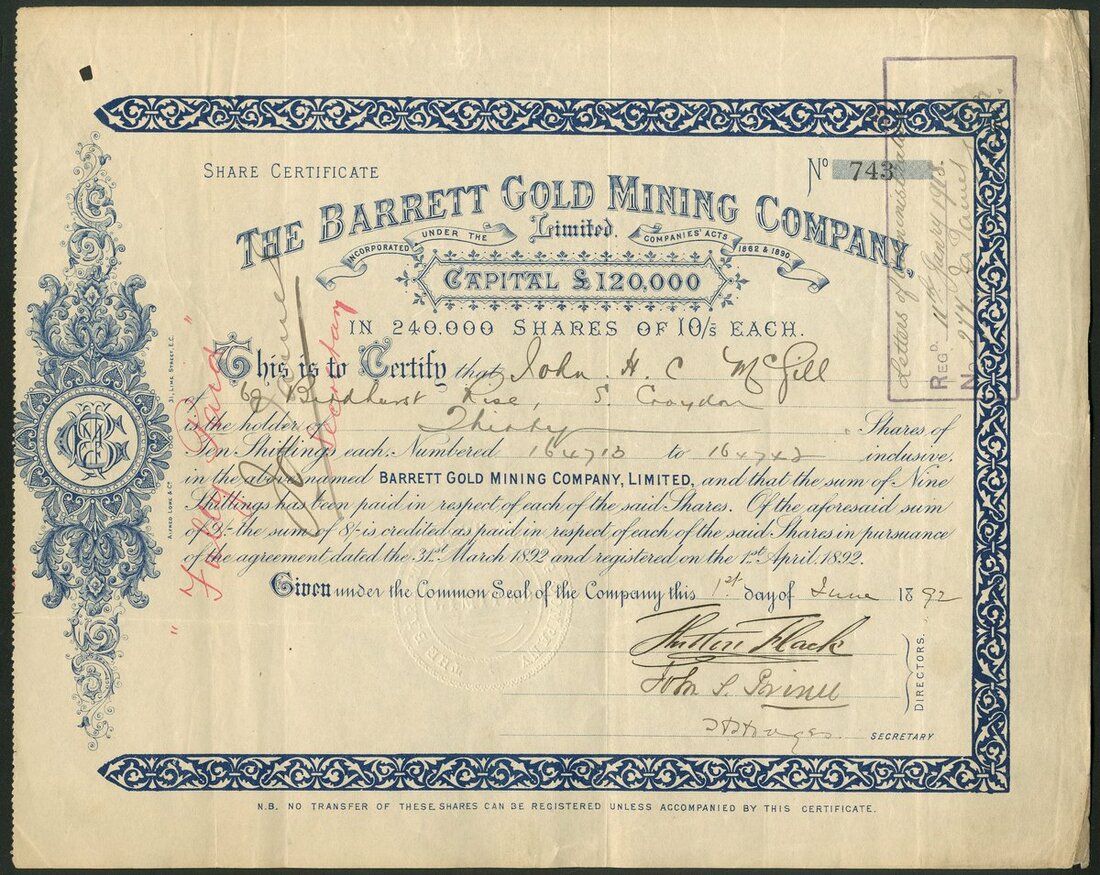 SHARE CERTIFICATE
No 743
THE BARRETT GOLD MINING COMPANY,
Limited.
INCORPORATED UNDER THE COMPANIES' ACTS 1862 & 1890
CAPITAL £120,000
IN 240,000 SHARES OF 10/s EACH.
This is to Certify that John H. C McGill
of Birdhurst Rise, S. Croydon
is the holder of Thirty Shares of
Ten Shillings each, Numbered 164713 to 164742 inclusive,
in the above named BARRETT GOLD MINING COMPANY, LIMITED, and that the sum of Nine
Shillings has been paid in respect of each of the said Shares. Of the aforesaid sum
of 9/- the sum of 8/- is credited as paid in respect of each of the said Shares in pursuance
of the agreement dated the 31st March 1892 and registered on the 1st April 1892.
Given under the Common Seal of the Company this 1st day of June 1892
Hutton Flack
John S.
DIRECTORS.
SECRETARY
N.B. NO TRANSFER OF THESE SHARES CAN BE REGISTERED UNLESS ACCOMPANIED BY THIS CERTIFICATE.
"Fully Paid"
Secretary
ALFRED LOWE & Co. 31, LIME STREET, E.C.
Letters of Administration
REGD. 1913.
No